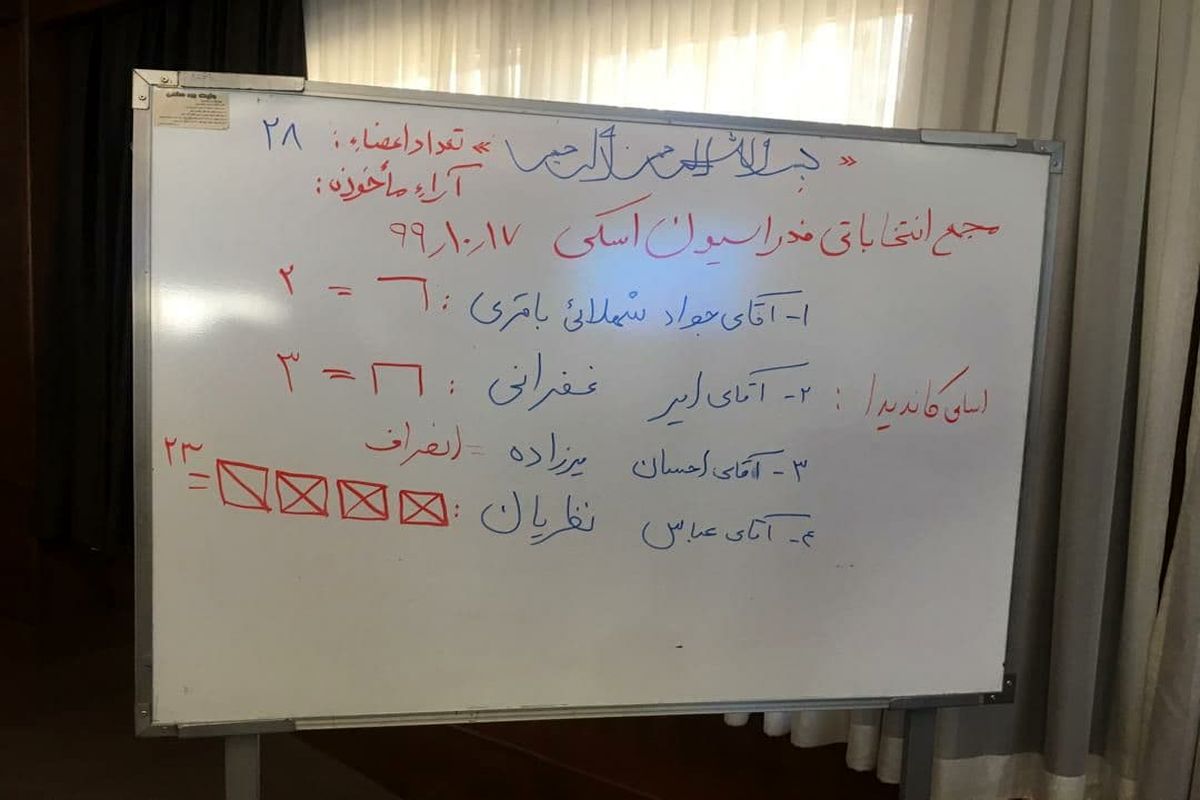 « بسم الله الرحمن الرحیم » تعداد اعضاء : ۲۸
آراء مأخوذه :
مجمع انتخاباتی فدراسیون اسکی ۹۹٫۱۰٫۱۷
۱- آقای جواد شملائی باقری : = ۲
اسامی کاندیدا : ۲- آقای امیر غفرانی : = ۳
۳- آقای احسان میرزاده = انصراف
۴- آقای عباس نظریان : = ۲۳